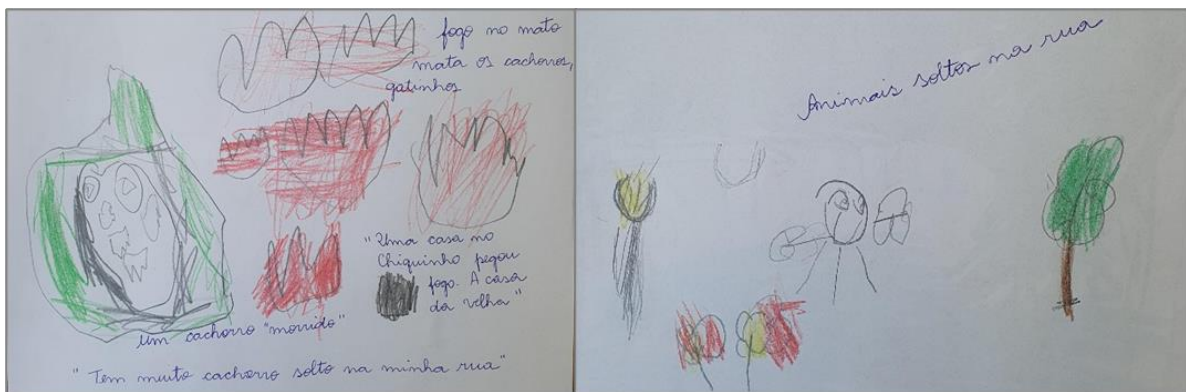 fogo no mato
mata os cachorros,
gatinhos
"Uma casa no
Chiquinho pegou
fogo. A casa
da velha"
um cachorro "morrido"
"Tem muito cachorro solto na minha rua"
Animais soltos na rua